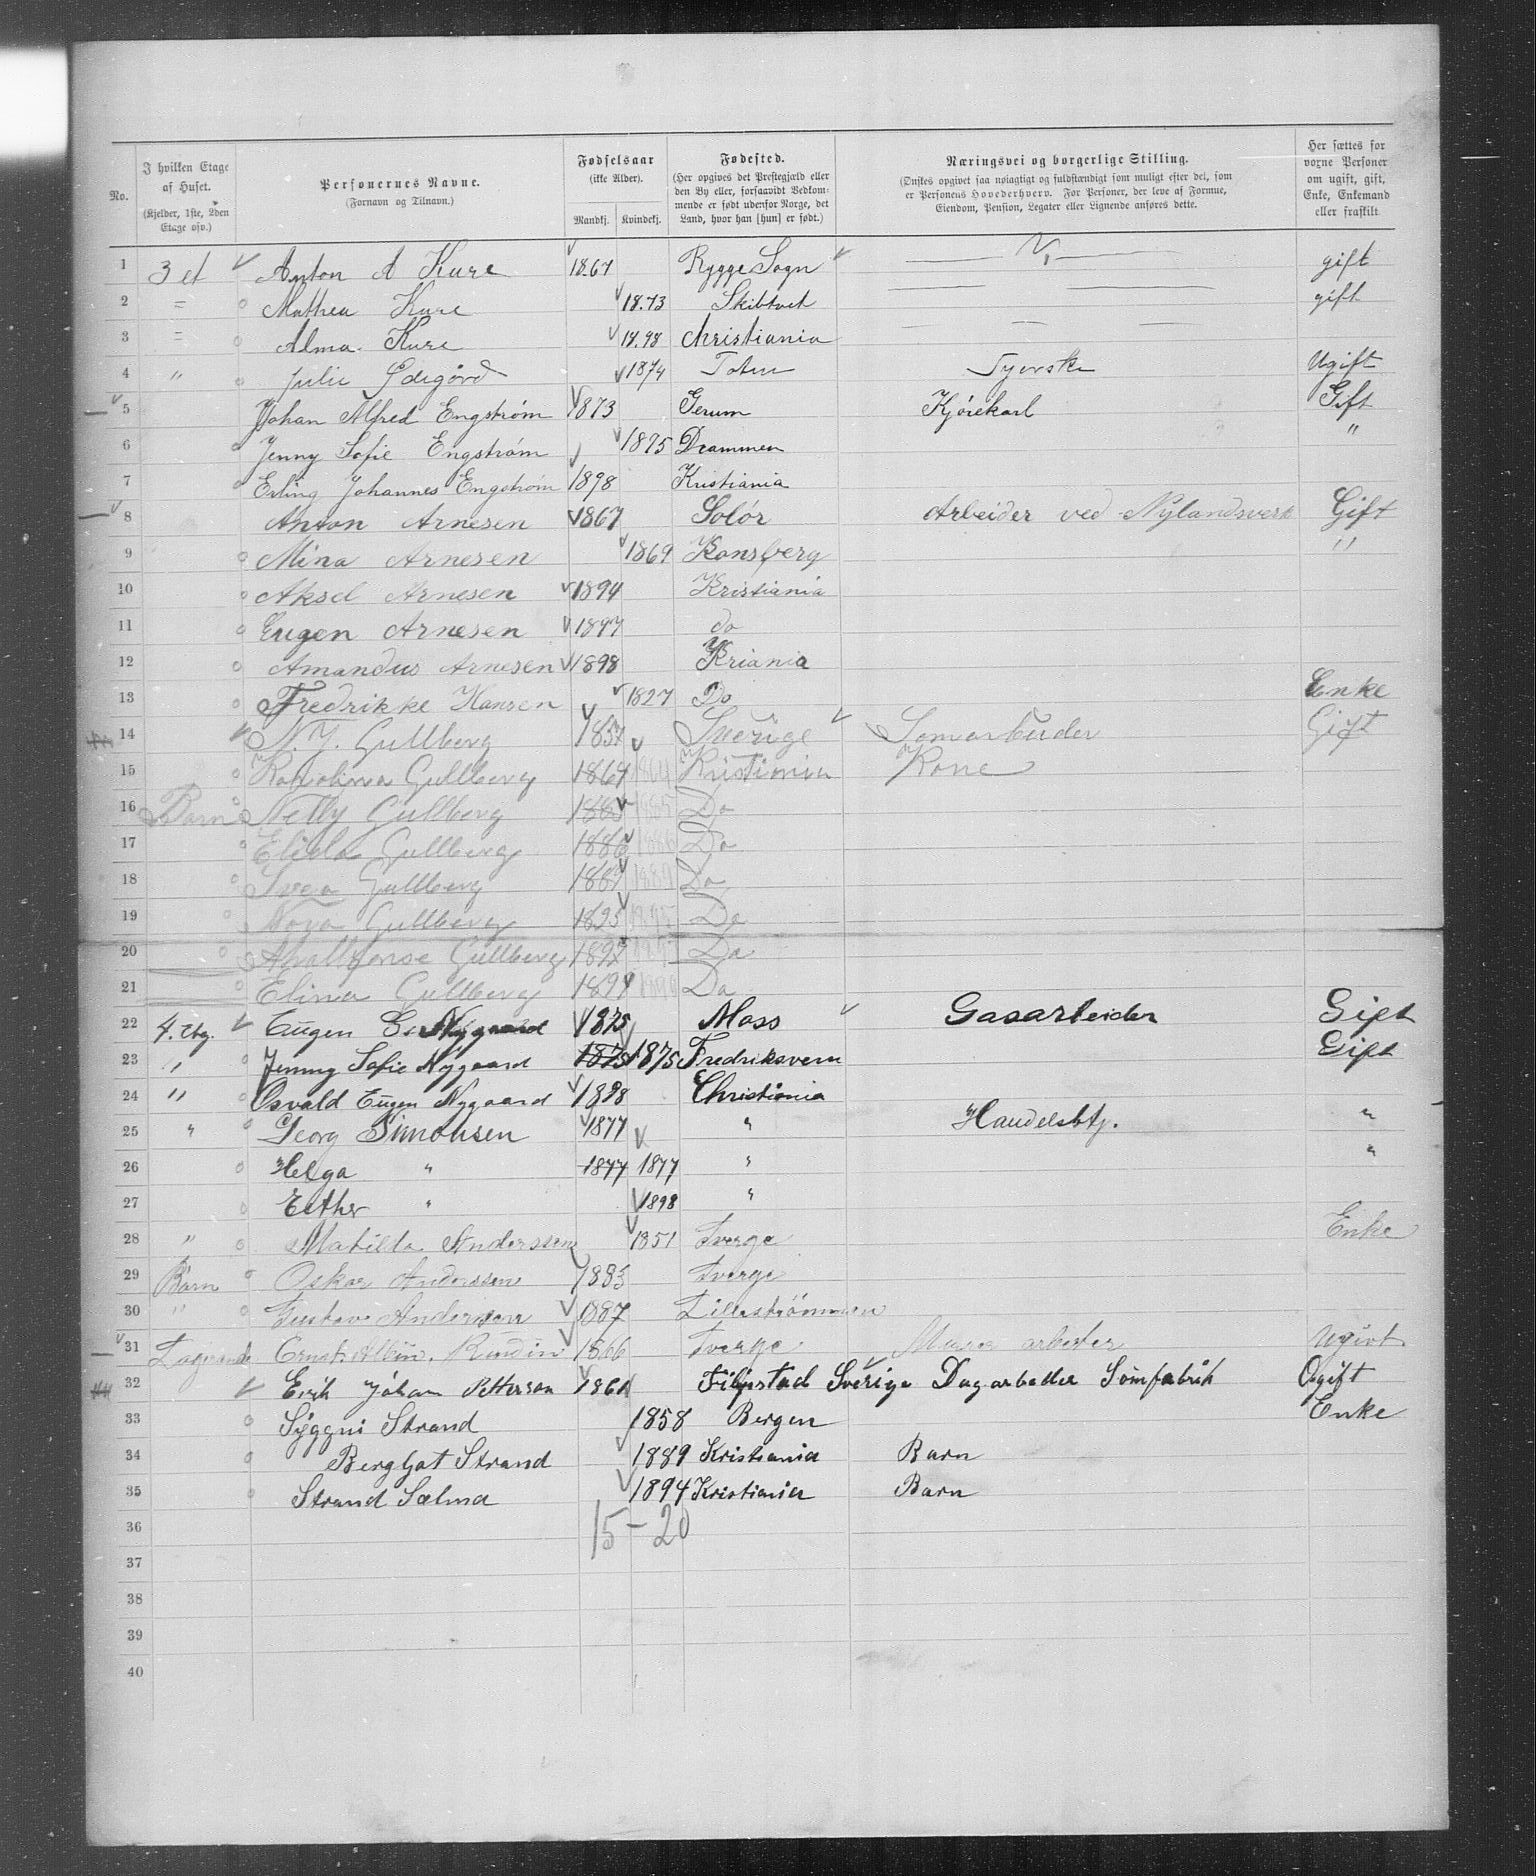 No.
I hvilken Etage af Huset. (Kjelder, 1ste, 2den Etage osv.)
Personernes Navne. (Fornavn og Tilnavn.)
Fødselsaar (ikke Alder). Mandkj. Kvindekj.
Fødested. (Her opgives det Prestegjæld eller den By eller, forsaavidt Vedkommende er født udenfor Norge, det Land, hvor han [hun] er født.)
Næringsvei og borgerlige Stilling. (Ønskes opgivet saa nøiagtigt og fuldstændigt som muligt efter det, som er Personens Hovederhverv. For Personer, der leve af Formue, Eiendom, Pension, Legater eller Lignende anføres dette.
Her sættes for voxne Personer om ugift, gift, Enke, Enkemand eller fraskilt
1 3 et Anton A Kure 1867 Rygge Sogn gift
2 = Mathea Kure 1873 Skibtvet gift
3 = Alma Kure 1898 Christiania
4 " Julie Ødegård 1874 Toten Syerske Ugift
5 Johan Alfred Engstrøm 1873 Gerum Kjørekarl Gift
6 Jenny Sofie Engstrøm 1875 Drammen "
7 Erling Johannes Engstrøm 1898 Kristiania
8 Anton Arnesen 1867 Solør Arbeider ved Nylandsverk Gift
9 Mina Arnesen 1869 Konsberg "
10 Aksel Arnesen 1894 Kristiania
11 Eugen Arnesen 1897 do
12 Amandus Arnesen 1898 Kriania
13 Fredrikke Hansen 1827 Do Enke
14 N. J. Gullberg 1857 Sverige Sømarbeider Gift
15 Karolina Gullberg 1864 1864 Kristiania Kone
16 Barn Nelly Gullberg 1885 1885 Do
17 Elida Gullberg 1886 1886 Do
18 Svea Gullberg 1889 1889 Do
19 Nora Gullberg 1895 1895 Do
20 Gullberg 1897 1897 Do
21 Elina Gullberg 1899 1899 Do
22 4. Etg. Eugen Nygaard 1875 Moss Gasarbeider Gift
23 " Jenny Sofie Nygaard 1875 1875 Fredriksvern Gift
24 " Osvald Eugen Nygaard 1898 Christiania
25 " Georg Simonsen 1877 " Handelsbtj. "
26 Helga " 1877 1877 " "
27 Esther " 1898 "
28 " Matilda Anderssen 1851 Sverge Enke
29 Barn Oskar Anderssen 1883 Sverge
30 " Gustav Anderssen 1887 Lillestrømmen
31 Lagerande Ernst Albin Rundin 1866 Sverge Murer arbeider Ugivt
32 Erik Johan Petterson 1861 Filipstad Sverige Dagarbeder Sömfabrik Ogift
33 Strand 1858 Bergen Enke
34 Bergljot Strand 1889 Kristiania Barn
35 Strand Selma 1894 Kristiania Barn
36 15-20
37
38
39
40